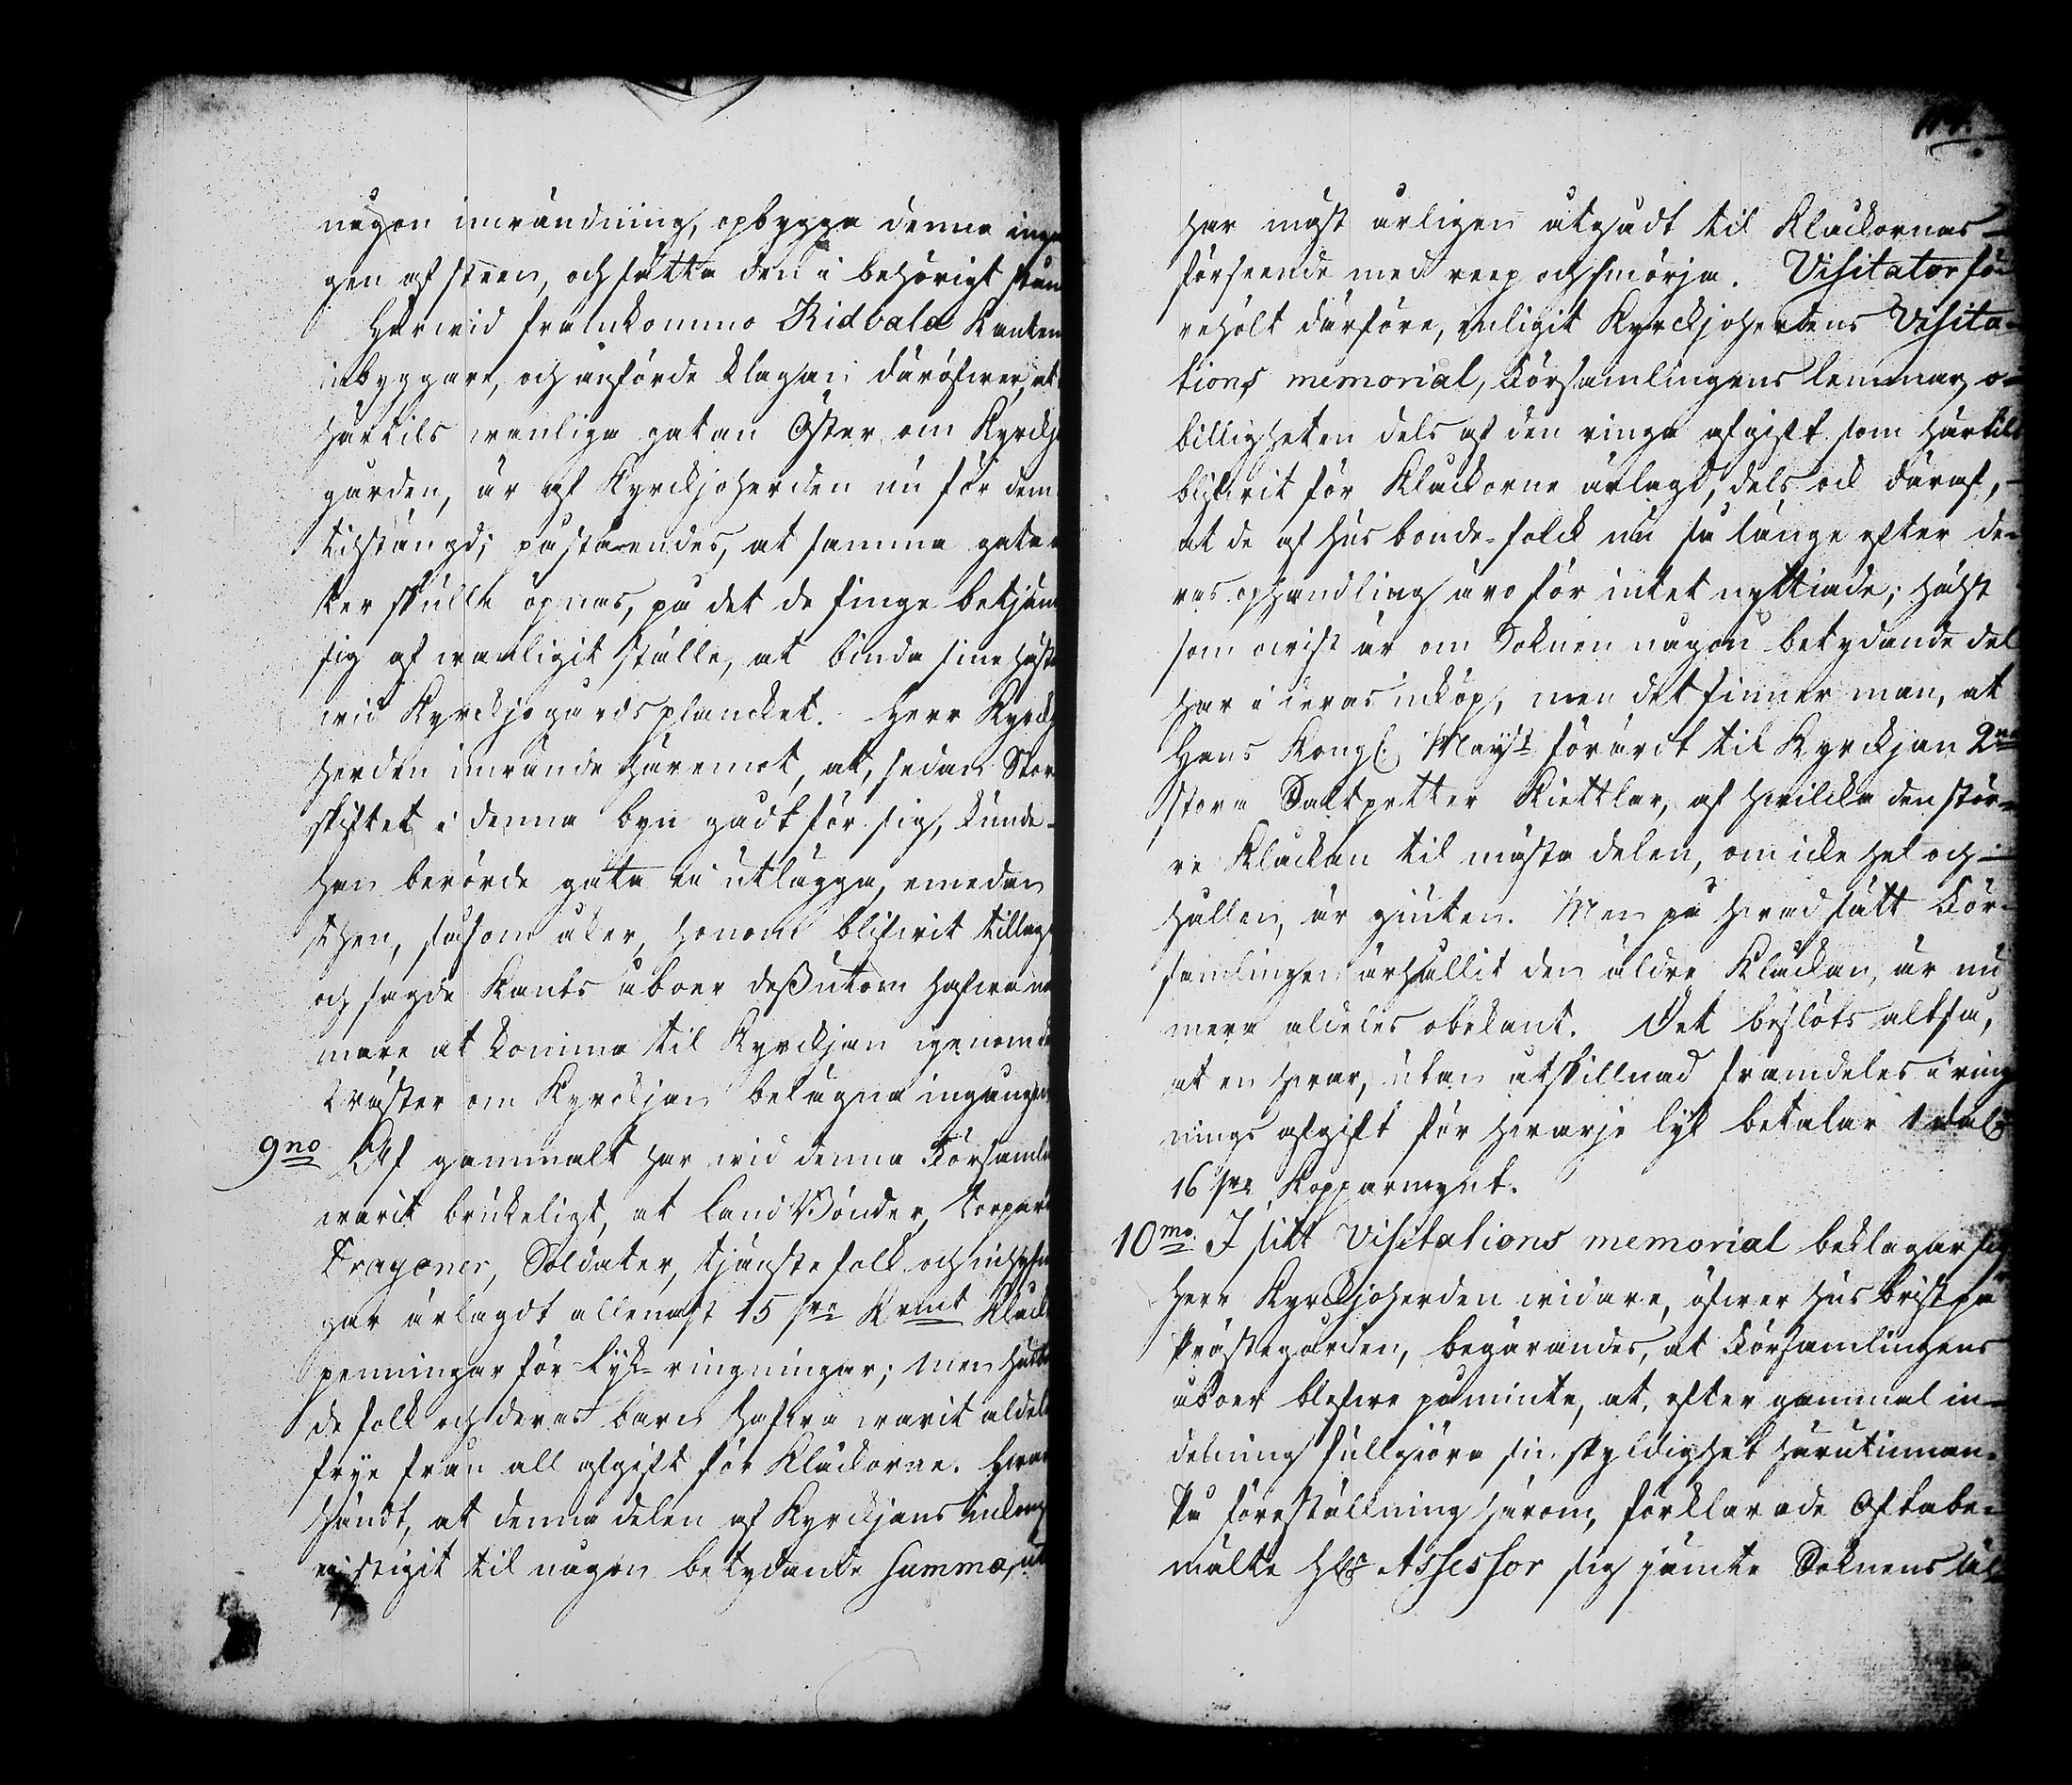 någon inwändning, opbygga denna ingån
gen af steen, och sätta den i behörigt stån
Härwid framkommo Ridvala Kantens
inbyggare, och anförde klagan däröfwer, at
härtils wanliga gatan Öster om Kyrckjo
gården, är af Kyrckjoherden nu för dem
tilstängd; påståendes, at samma gata
ter skulle öpnas, på det de finge betjäna
sig af wanligit ställe, at binda sine hästar
wid Kyrckjogårdsplancket. Herr Kyrckjo
herden inwände häremot, at, sedan Stor
skiftet i denna byn gådt för sig, kunde
han berörde gata ei utlägga, emedan
then, såsom åker, honom blifwit tillagd
och sagde Kants åboer dessutom hafwa när
mare at komma til Kyrckjan igenom den
Wäster om Kyrckjan belägna ingången
9no Af gammalt har wid denna Församling
warit brukeligt, at Land Bönder, Torpare
Dragoner, Soldater, tjänstefolk och inhyses
gar ärlagdt allenast 15 öre Kmt Kluck
penningar för Lijk-ringningar; men husbon
de folk och deras barn hafwa warit aldeles
frije från all afgift för Kluckorne. Hwar
händt, at denna delen af Kyrckjans inkomst
ei stigit til någon betydande Summa, ut
har mäst årligen utgådt til Kluckornas
förseende med reep och smörja. Visitator fö
rehölt därföre, enligit Kyrckjoherdens Visita-
tions memorial, Församlingens lemmar, o-
billigheten dels af den ringa afgift som härtils
blifwit för Kluckorne ärlagd, dels ock däraf,
at de af Husbonde-folck nu så länge efter de-
ras ophandling äro för intet nyttiade; hälst
som owist är om Soknen någon betydande del
har i deras inköp, men det finner man, at
Hans Kongl. Mayst förärdt til Kyrckjan 2ne
stora Saltpetter Kiettlar, af hwilcka den stör-
re Kluckan til mästa delen, om icke hel och
hållen, är giuten. Men på hwad sätt För-
samlingen ärhållit den äldre Kluckan, är nu
mera aldeles obekant. Det beslöts altså,
at en hwar, utan åtskillnad framdeles i ring-
nings afgift för hwarje lijk betalar 1 dal.
16 öre Kopparmynt.
10mo. I sitt Visitations memorial beklagar sig
Herr Kyrckjoherden widare, öfwer husbrist på
Prästegården, begärandes, at Församlingens
åboer blefwe påminte, at, efter gammal in-
delning fullgiöra sin skyldighet härutinnan.
På föreställning härom, förklarade Oftabe-
mälte Hr Assessor sig jämte Soknens äl-